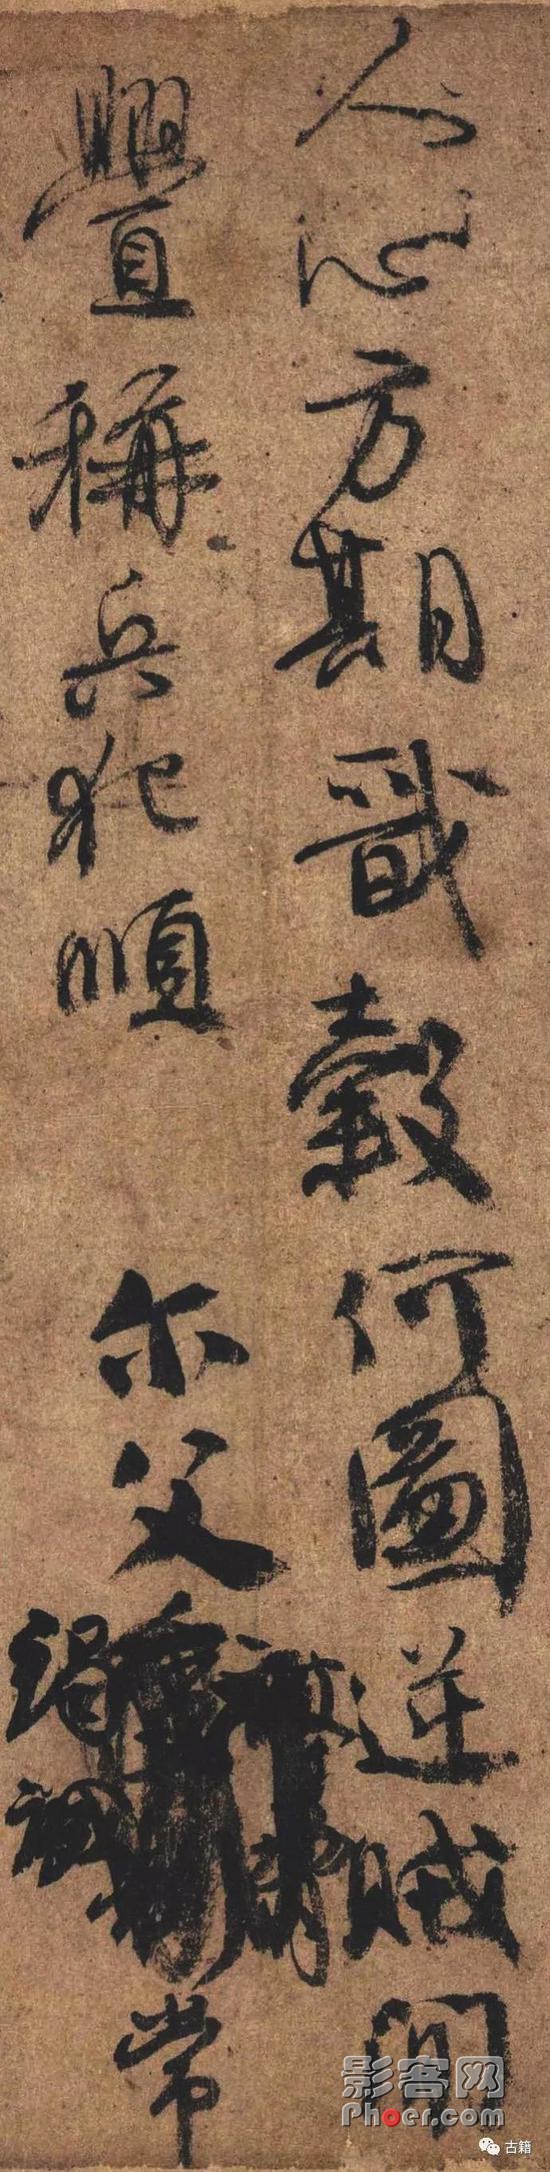 人心方期戩穀何圖逆賊閒
釁稱兵犯順 尔父
竭誠
常
影客网
Phoer.com
古籍